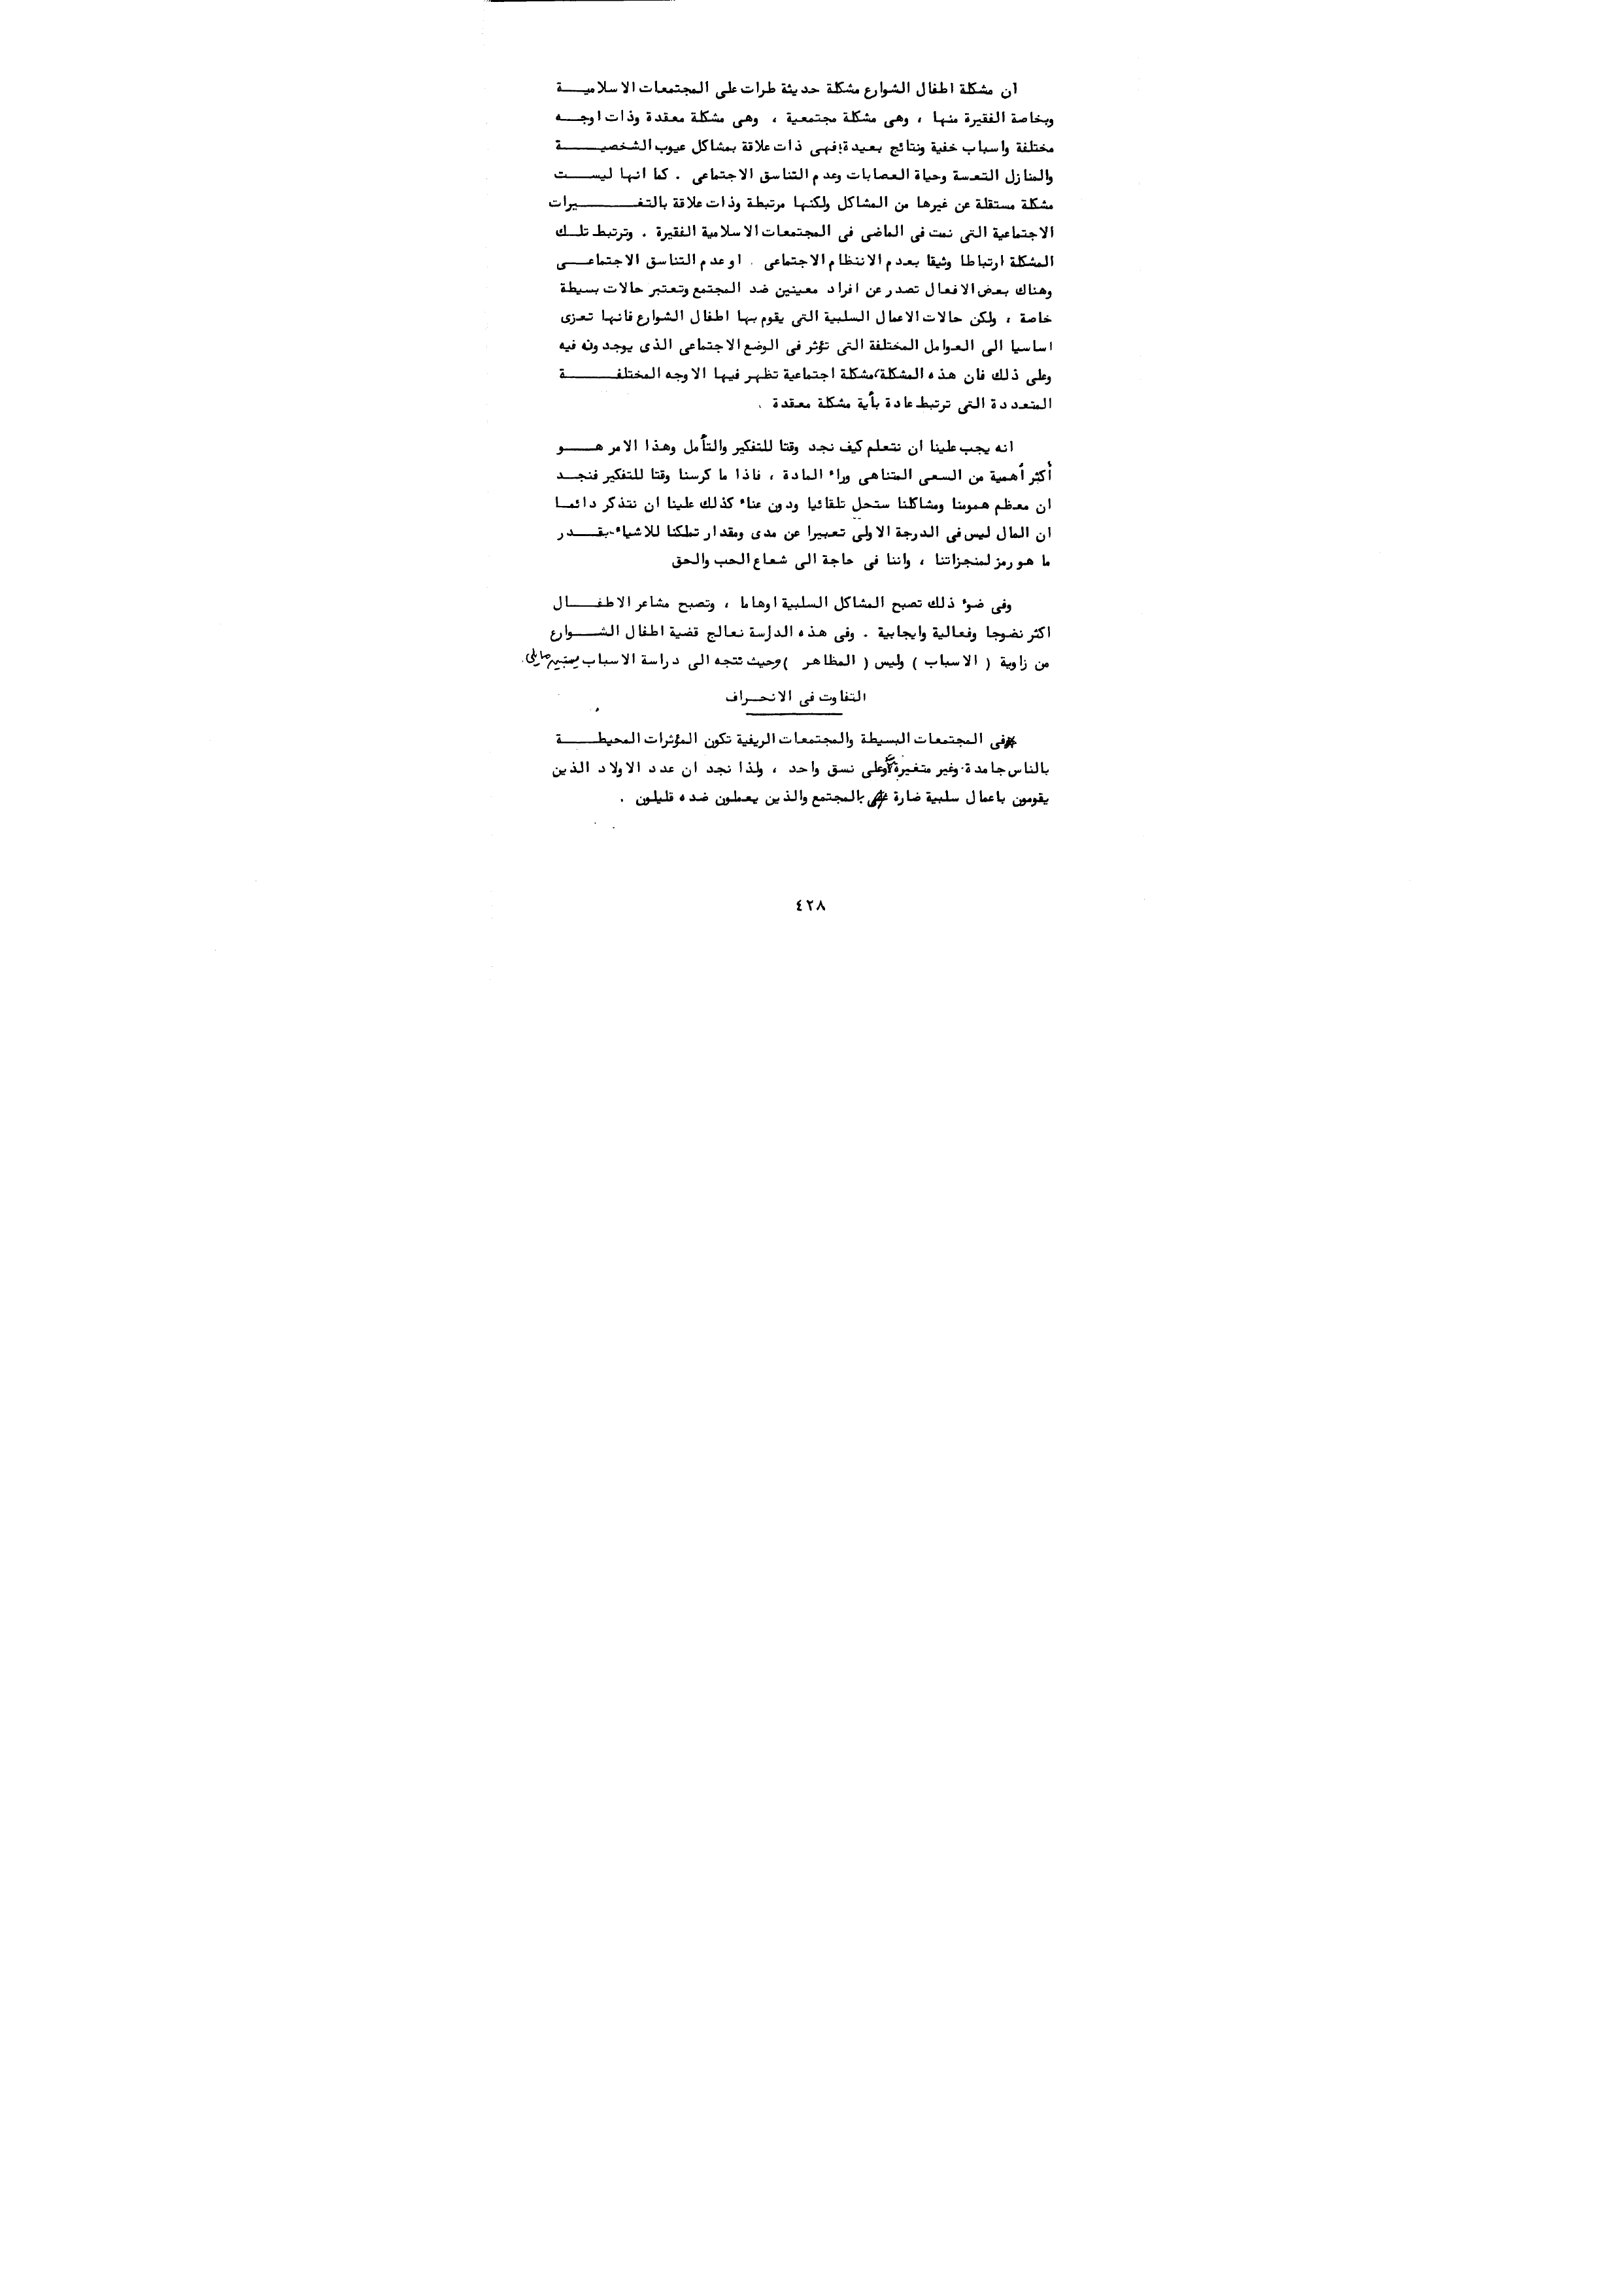 ان مشكلة اطفال الشوارع مشكلة حديثة طرات على المجتمعات الاسلامية
وبخاصة الفقيرة منها ، وهى مشكلة مجتمعية ، وهى مشكلة معقدة وذات اوجه
مختلفة واسباب خفية ونتائج بعيدة؛فهى ذات علاقة بمشاكل عيوب الشخصية
والمنازل التعسة وحياة العصابات وعدم التناسق الاجتماعى . كما انها ليست
مشكلة مستقلة عن غيرها من المشاكل ولكنها مرتبطة وذات علاقة بالتغيرات
الاجتماعية التى نمت فى الماضى فى المجتمعات الاسلامية الفقيرة . وترتبط تلك
المشكلة ارتباطا وثيقا بعدم الانتظام الاجتماعى . اوعدم التناسق الاجتماعى
وهناك بعض الافعال تصدر عن افراد معينين ضد المجتمع وتعتبر حالات بسيطة
خاصة ، ولكن حالات الاعمال السلبية التى يقوم بها اطفال الشوارع فانها تعزى
اساسيا الى العوامل المختلفة التى تؤثر فى الوضع الاجتماعى الذى يوجدونه فيه
وعلى ذلك فان هذه المشكلة،مشكلة اجتماعية تظهر فيها الاوجه المختلفة
المتعددة التى ترتبط عادة بأية مشكلة معقدة .
انه يجب علينا ان نتعلم كيف نجد وقتا للتفكير والتأمل وهذا الامر هو
أكثر أهمية من السعى المتناهى وراء المادة ، فاذا ما كرسنا وقتا للتفكير فنجد
ان معظم همومنا ومشاكلنا ستحل تلقائيا ودون عناء كذلك علينا ان نتذكر دائما
ان المال ليس فى الدرجة الاولى تعبيرا عن مدى ومقدار تملكنا للاشياء بقدر
ما هو رمز لمنجزاتنا ، واننا فى حاجة الى شعاع الحب والحق
وفى ضوء ذلك تصبح المشاكل السلبية اوهاما ، وتصبح مشاعر الاطفال
اكثر نضوجا وفعالية وايجابية . وفى هذه الدراسة نعالج قضية اطفال الشوارع
من زاوية ( الاسباب ) وليس ( المظاهر ) وحيث نتجه الى دراسة الاسباب
التفاوت فى الانحراف
فى المجتمعات البسيطة والمجتمعات الريفية تكون المؤثرات المحيطة
بالناس جامدة وغير متغيرة وعلى نسق واحد ، ولذا نجد ان عدد الاولاد الذين
يقومون باعمال سلبية ضارة بالمجتمع والذين يعملون ضده قليلون .
٤٢٨